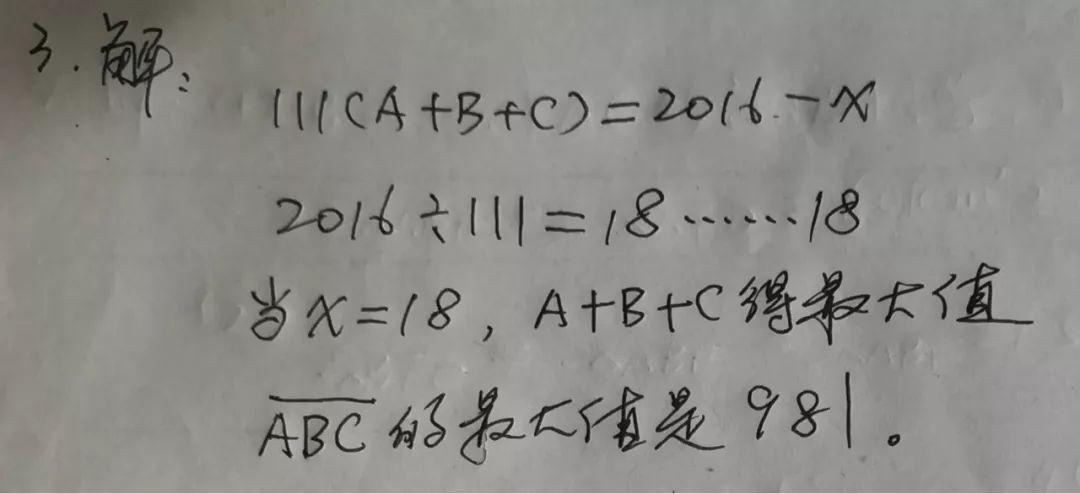 3.解:
111(A+B+C)=2016-x
2016÷111=18……18
当x=18,A+B+C得最大值
A̅B̅C̅的最大值是981。